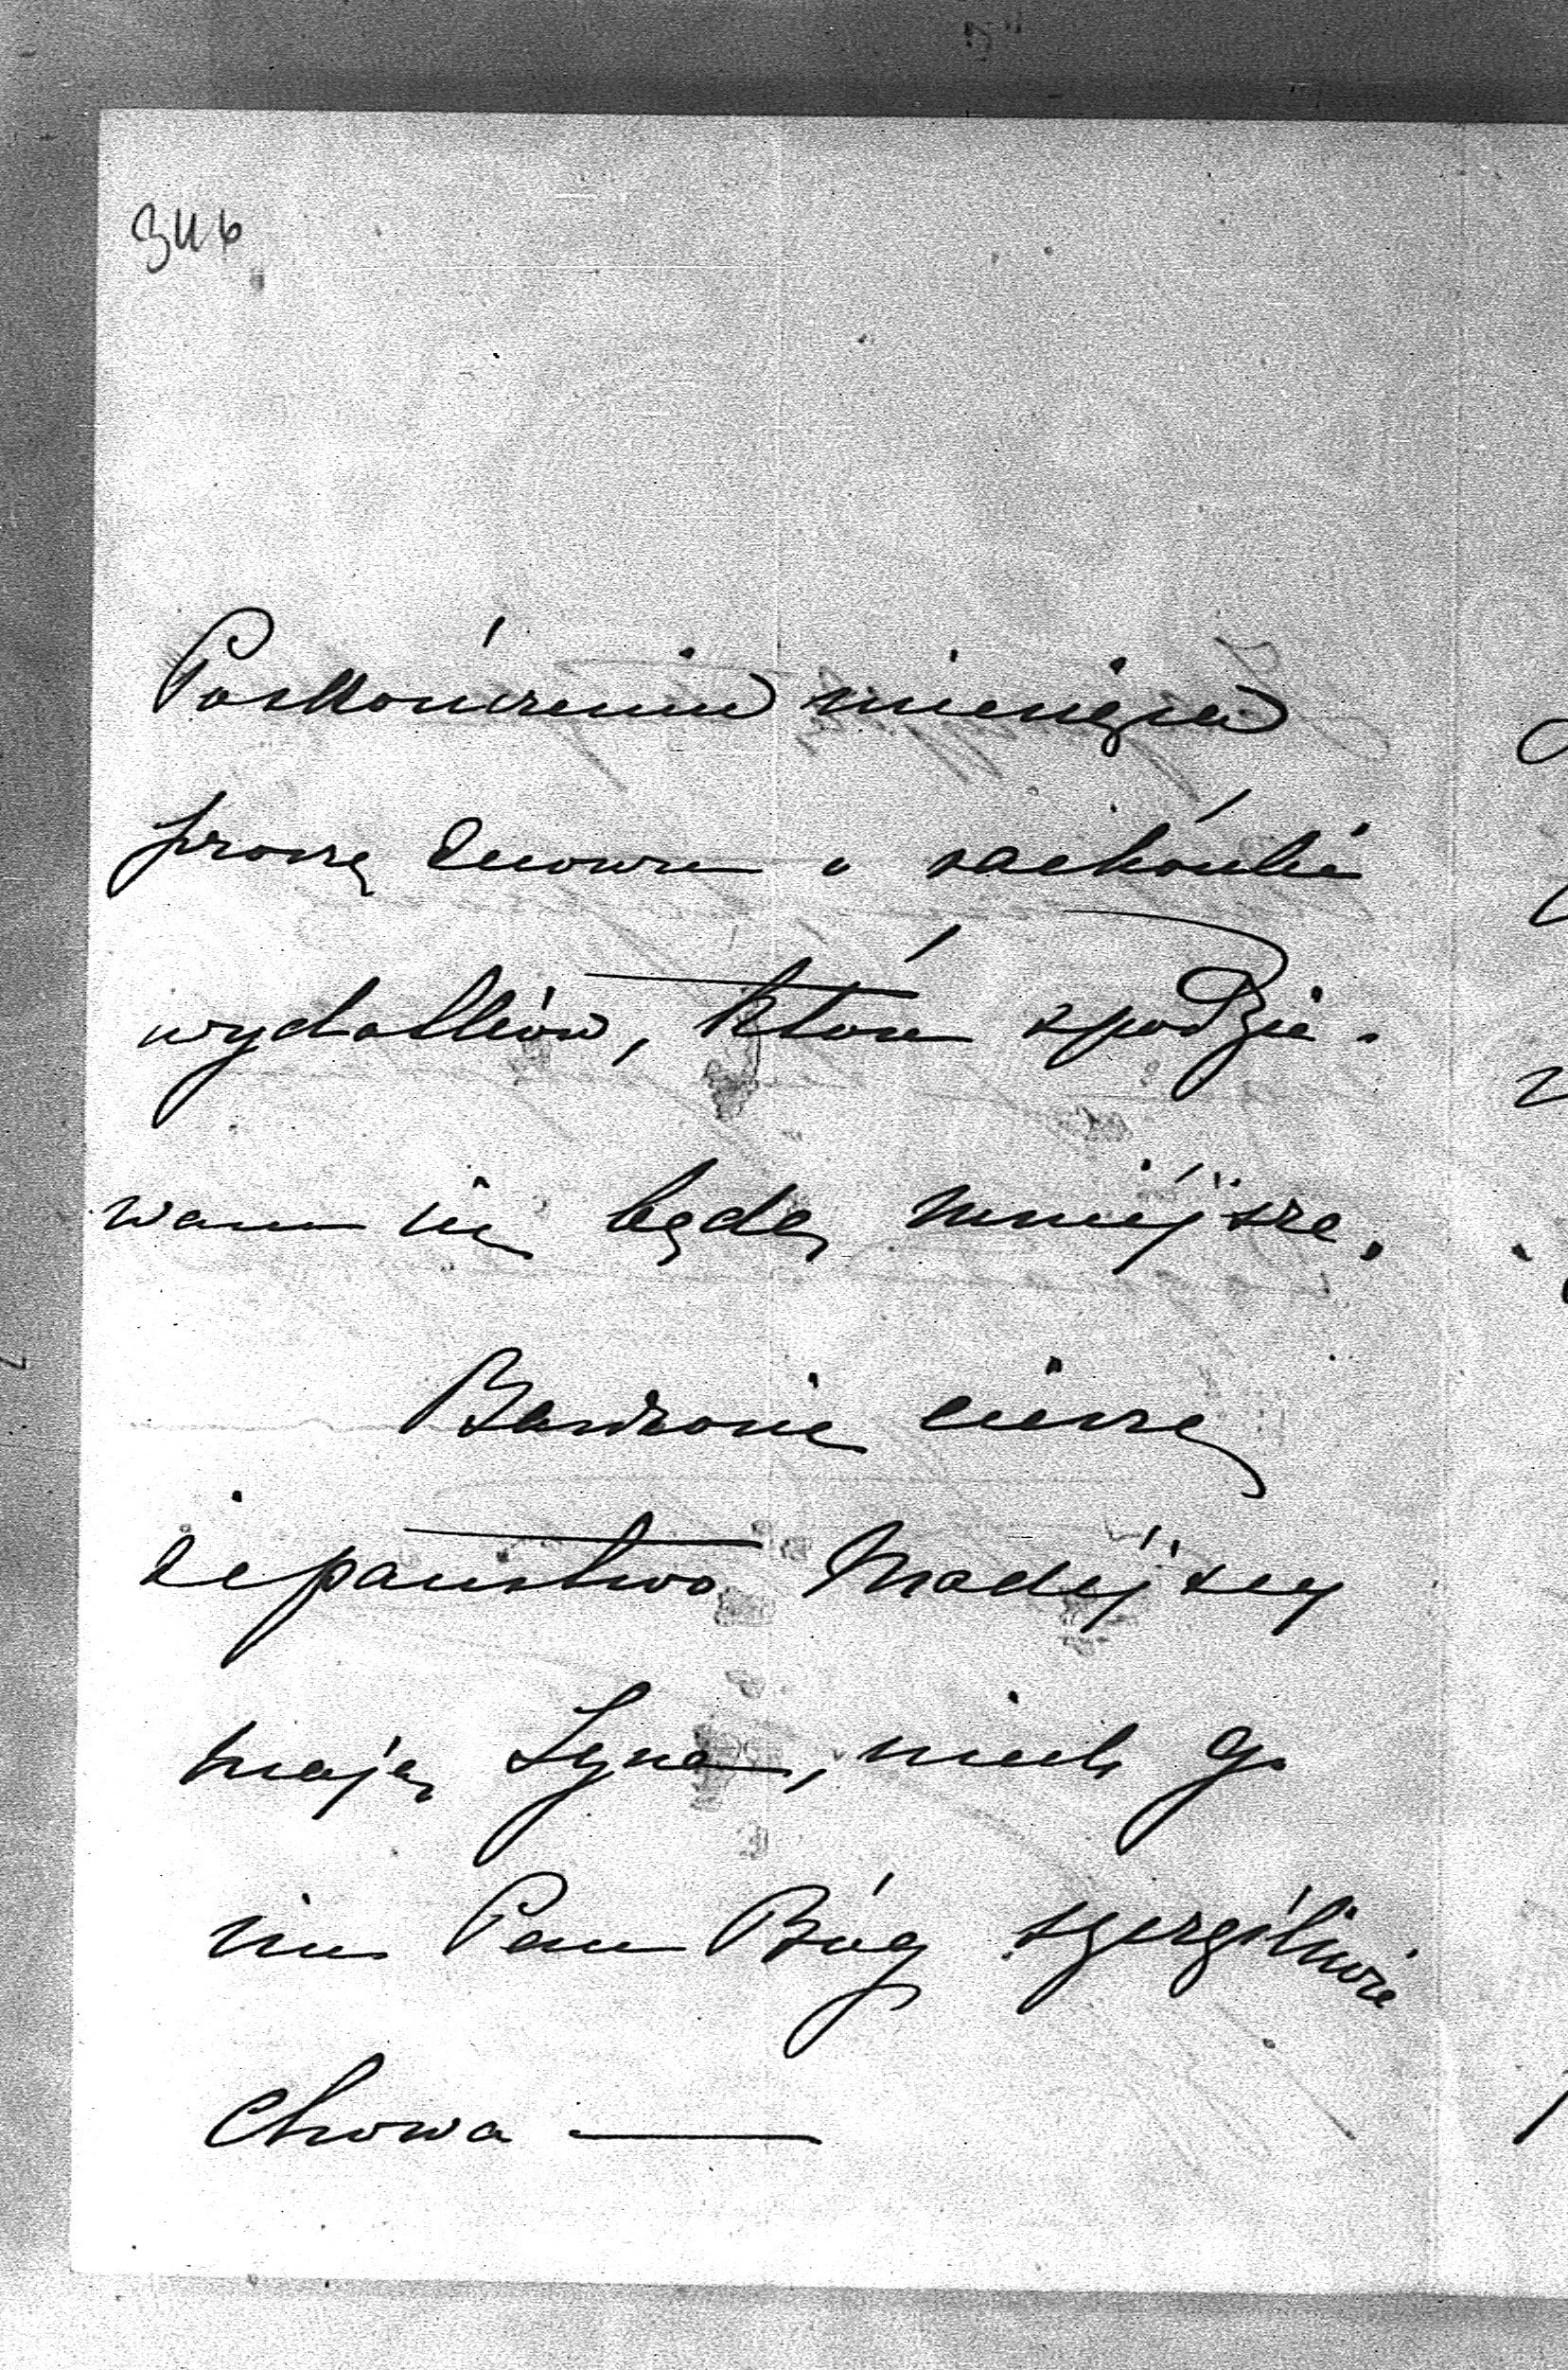 346
Poskończeniu miesiąca
proszę znowu o rachónki
wydatków, które spodzie-
wam się będą mniejsze.
Bardzo się cieszę
że państwo Madéjscy
mają Syna, niech go
im Pan Bóg szczęśliwie
Chowa —